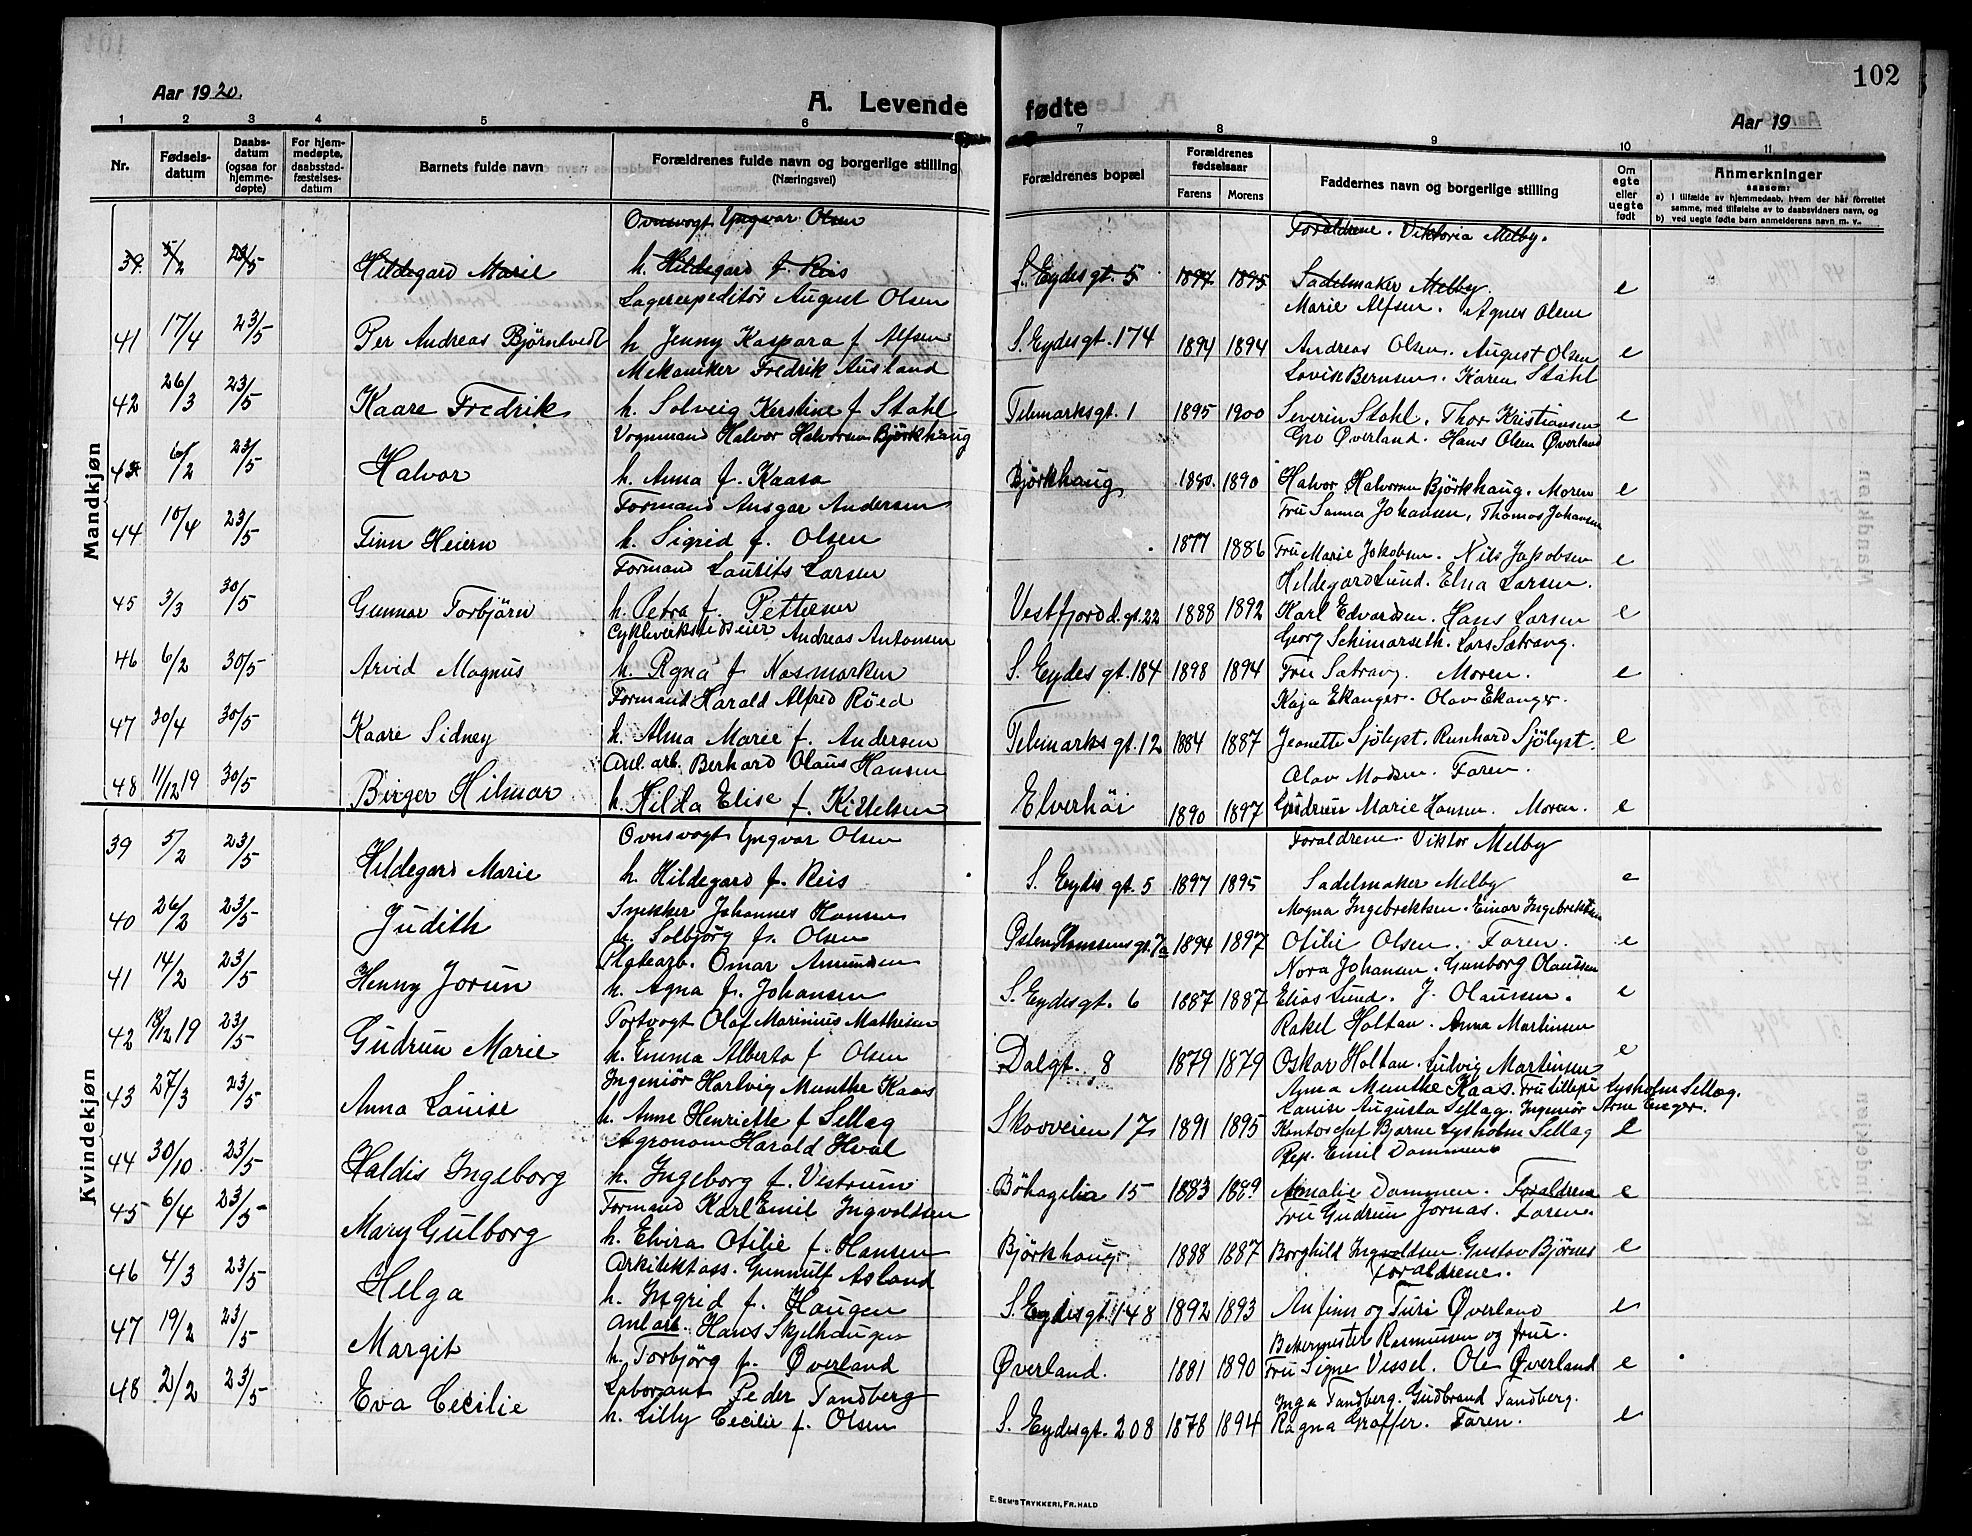 102
Aar 1920
A. Levende fødte
Aar 19
1 2 3 4 5 6 7 8 9 10 11
Nr.
Fødsels-datum
Daabs-datum (ogsaa for hjemme-døpte)
For hjem-medøpte, daabsstad-fæstelses-datum
Barnets fulde navn
Forældrenes fulde navn og borgerlige stilling (Næringsvei)
Forældrenes bopæl
Forældrenes fødselsaar
Farens Morens
Faddernes navn og borgerlige stilling
Om egte eller uegte født
Anmerkninger
saasom:
a) i tilfælde av hjemmedaab, hvem der har forrettet samme, med tilføielse av to daabsvidners navn, og
b) ved uegte fødte barn anmelderens navn m. v.
Mandkjøn
Ovnsvogt Yngvar Olsen Forældrene. Viktoria Melby.
39. 5/2 23/5 Hildegard Marie h. Hildegard f. Reis S. Eydesgt. 5 1897 1895 Sadelmaker Melby e
Lagerexpeditör August Olsen Marie Alfsen. Agnes Olsen
41 17/4 23/5 Per Andreas Bjørntvedt h. Jenny Kaspara f. Alfsen S. Eydesgt. 174 1894 1894 Andreas Olsen. August Olsen e
Mekaniker Fredrik Ausland Lovise Bernsen. Karen Stahl
42 26/3 23/5 Kaare Fredrik h. Solveig Kerstine f Stahl Telemarksgt. 1 1895 1900 Severin Stahl. Thor Kristiansen e
Vognmand Halvor Halvorsen Björkhaug Gro Øverland. Hans Olsen Øverland
43 6/2 23/5 Halvor h. Anna f. Kaasa Björkhaug 1880. 1890 Halvor Halvorsen Björkhaug. Moren e
Formand Ansgar Andersen Fru Sanna Johansen, Thomas Johansen
44 10/4 23/5 Finn Heiern h. Sigrid f. Olsen 1877 1886 Fru Marie Jakobsen. Nils Jakobsen e
Formand Laurits Larsen Hildegard Lund. Elna Larsen.
45 3/3 30/5 Gunnar Torbjörn h. Petra f. Pettersen Vestfjordd. gt. 22 1888 1892 Karl Edvardsen. Hans Larsen e
Cykleverkstedseier Andreas Antonsen Georg Schimarseth. Lars Sætravg.
46 6/2 30/5 Arvid Magnus h. Agna f Nosmorken S. Eydes gt. 184 1898 1894 Fru Sætravg. Moren. e
Formand Harald Alfred Röed Kaja Ekanger. Olav Ekanger.
47 30/4 30/5 Kaare Sidney h. Alma Marie f. Andersen Telemarks gt. 12 1884 1887 Jeanette Sjölyst. Runhard Sjölyst. e
Anl. arb. Berhard Olaus Hansen Olav Madsen. Faren.
48 11/12 19 30/5 Birger Hilmar h. Hilda Elise f. Kittelsen Elverhöi 1890 1897 Gudrun Marie Hansen. Moren. e
Kvindekjøn
Ovnsvogt Yngvar Olsen Forældrene. Viktor Melby
39 5/2 23/5 Hildegard Marie h. Hildegard f. Reis S. Eydes gt. 5 1897 1895 Sadelmaker Melby e
Snekker Johannes Hansen Magna Ingebrektsen. Einar Ingebrektsen
40 26/2 23/5 Judith h. Solbjörg f. Olsen Østen Hanssens gt. 7a 1894 1897 Otilie Olsen. Faren. e
Platearb. Omar Amundsen Nora Johansen. Gunborg Olaussen
41 14/2 23/5 Henny Jorun h. Agna f. Johansen S. Eydesgt. 6 1887 1887 Elias Lund. J. Olaussen. e
Portvogt Olaf Marinius Mathisen Rakel Holtan. Anna Martinsen
42 18/12 19 23/5 Gudrun Marie h. Emma Alberta f Olsen Dalgt. 8 1879 1879 Oskar Holtan. Ludvig Martinsen e
Ingeniör Hartvig Munthe Kaas Anna Munthe Kaas. Fru Lillepi Lysholm Sellæg.
43 27/3 23/5 Anna Louise h. Anne Henriette f Sellæg Louise Augusta Sellæg. Ingeniör Arne Enger.
Skovveien 17 1891 1895 Kontorchef Bjarne Lysholm Sellæg e
Agronom Harald Hval Rep. Emil Dammen
44 30/10. 23/5 Haldis Ingeborg h. Ingeborg f. Vestrum Böhagelia 15 1883 1889 Amalie Dammen. Forældrene e
Formand Karl Emil Ingvoldsen Fru Gudrun Jornas. Faren.
45 6/4 23/5 Mary Gulborg h. Elvira Otilie f. Hansen Björkhaug 1888 1887 Borghild Ingvoldsen Gustav Björnes e
Arkitektass. Gunnulf Asland Forældrene.
46 4/3 23/5 Helga h. Ingrid f. Haugen S. Eydesgt. 148 1892 1893 Anfinn og Turi Øverland e
Anl. arb. Hans Skjelhauger Bekermester Rasmussen og frue.
47 19/2 23/5 Margit h. Torbjörg f. Øverland Øverland. 1881 1890 Fru Signe Vessel. Ole Øverland e
Laborant Peder Tandberg Inga Tandberg. Gudbrand Tandberg.
48 2/2 23/5 Eva Cecilie h. Lilly Cecilie f. Olsen S. Eydesgt. 208 1878 1894 Ragna Graffer. Faren. e
E. SEM'S TRYKKERI, FR.HALD